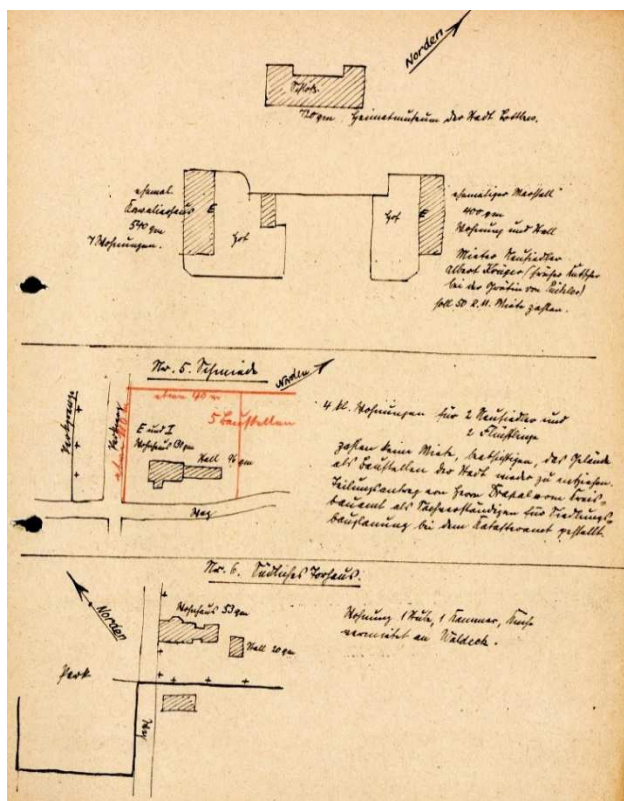 Norden
Schloß.
720 qm. Heimatmuseum der Stadt Cottbus.
ehemal.
Kavalierhaus
540 qm
7 Wohnungen.
E
Hof
Hof
E
ehemaliger Marstall
400 qm
Wohnung und Stall
Mieter Neusiedler
Albert Krüger (früher Kutscher
bei der Gräfin von Pückler)
soll 50 R.M. Miete zahlen.
Nr. 5. Schmiede
Norden
etwa 90 m
5 Baustellen
E und I
Wohnhaus 130 qm
Stall 96 qm
Weg
4 kl. Wohnungen für 2 Neusiedler und
2 Flüchtlinge
zahlen keine Miete, beabsichtigen, das Gelände
als Baustellen der Stadt wieder zu entziehen.
Teilungsantrag von Herrn Kreis-
bauamt als Sachverständigen für Siedlungs-
bauplanung bei dem Katasteramt gestellt.
Nr. 6. Südliches Torhaus.
Norden
Wohnhaus 53 qm
Stall 20 qm
Park
Weg
Wohnung 1 Stube, 1 Kammer, Küche
vermietet an Waldeck.